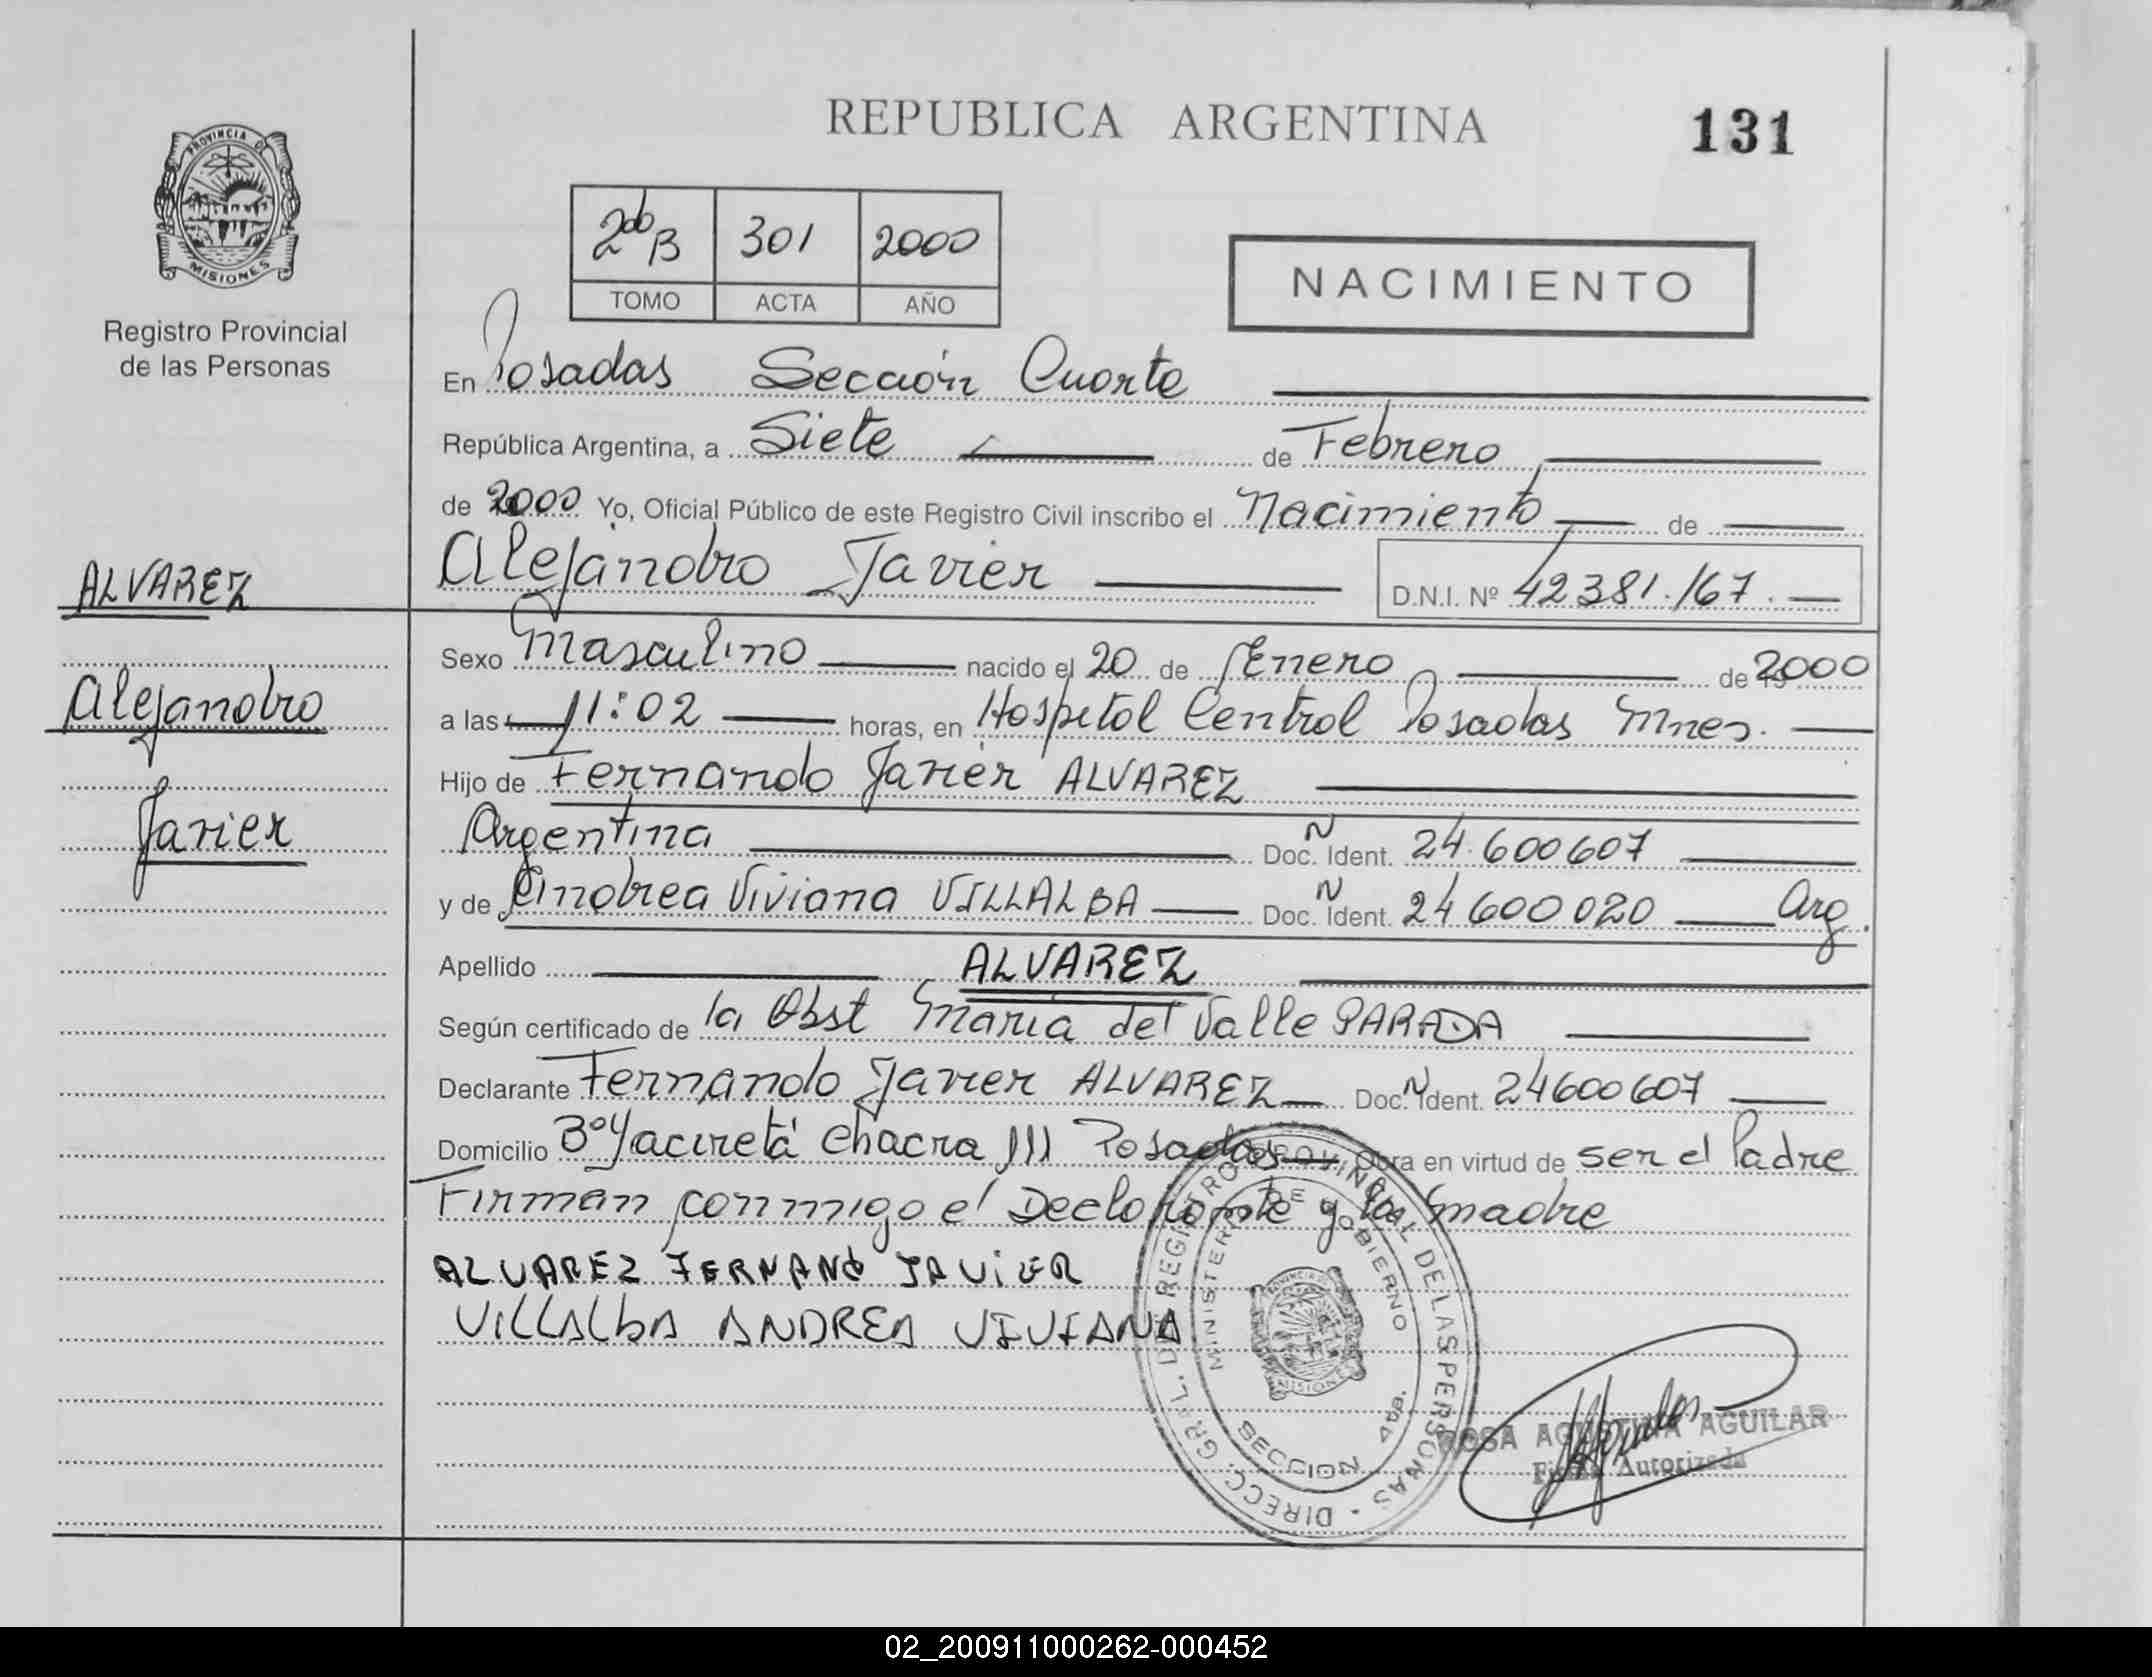 REPUBLICA ARGENTINA
131
PROVINCIA DE
MISIONES
Registro Provincial
de las Personas
2do B 301 2000
TOMO ACTA AÑO
NACIMIENTO
En Posadas Sección Cuarta
República Argentina, a Siete de Febrero
de 2000 Yo, Oficial Público de este Registro Civil inscribo el Nacimiento de
Alejandro Javier D.N.I. Nº 42381.167.
ALVAREZ
Alejandro
Javier
Sexo Masculino nacido el 20 de Enero de 2000
a las 11:02 horas, en Hospital Central Posadas Mnes.
Hijo de Fernando Javier ALVAREZ
Argentina Doc. N Ident. 24.600607
y de Andrea Viviana VILLALBA Doc. N Ident. 24600020 Arg.
Apellido ALVAREZ
Según certificado de la Obst Maria del Valle PARADA
Declarante Fernando Javier ALVAREZ Doc. N Ident. 24600607
Domicilio Bº Yacireta' Chacra III Posadas Obra en virtud de ser el Padre
Firman conmigo el Declarante y la madre
ALVAREZ FERNANdo JAViER
ViLLALbA ANDREA VIVIANA
DIRECC. GRAL. DEL REGISTRO PROVINCIAL DE LAS PERSONAS
MINISTERIO DE GOBIERNO
PROVINCIA DE
MISIONES
SECCION 4ta.
ROSA AGUSTINA AGUILAR
Firma Autorizada
02_200911000262-000452